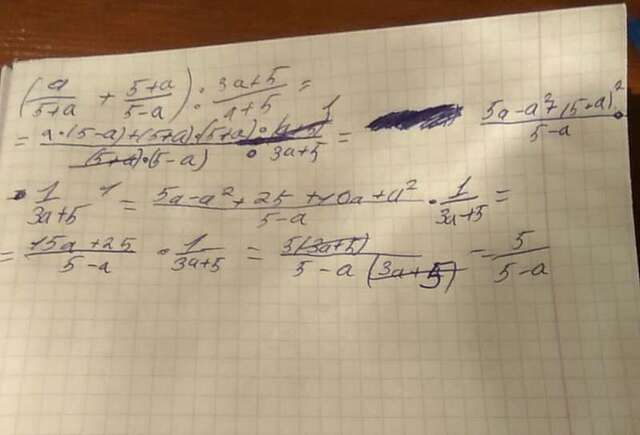 (a/(5+a) + (5+a)/(5-a)) : (3a+5)/(a+5) =
= (a·(5-a)+(5+a)·(5+a))/((5+a)·(5-a)) · (a+5)/(3a+5) = (5a-a²+(5+a)²)/(5-a) ·
· 1/(3a+5) = (5a-a²+25+10a+a²)/(5-a) · 1/(3a+5) =
= (15a+25)/(5-a) · 1/(3a+5) = 5(3a+5)/(5-a (3a+5)) = 5/(5-a)